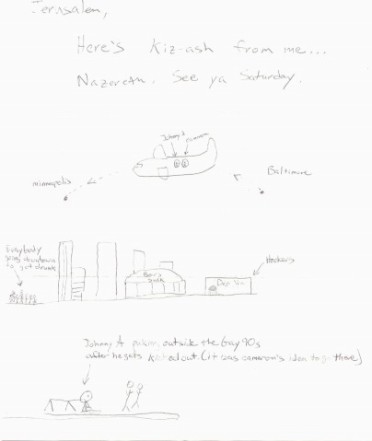 Jerusalem,
Here's Kiz-ash from me...
Nazareth. See ya Saturday.
Johnny A
Cameron
Minneapolis
Baltimore
Everybody
downtown
to get drunk
Hookers
Johnny A pukin outside the Gay 90s
after he gets kicked out. (it was cameron's idea to go there)